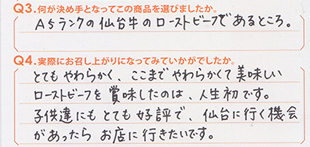 Q3.何が決め手となってこの商品を選びましたか。
A5ランクの仙台牛のローストビーフであるところ。
Q4.実際にお召し上がりになってみていかがでしたか。
とてもやわらかく、ここまでやわらかくて美味しい
ローストビーフを賞味したのは、人生初です。
子供達にもとても好評で、仙台に行く機会
があったらお店に行きたいです。